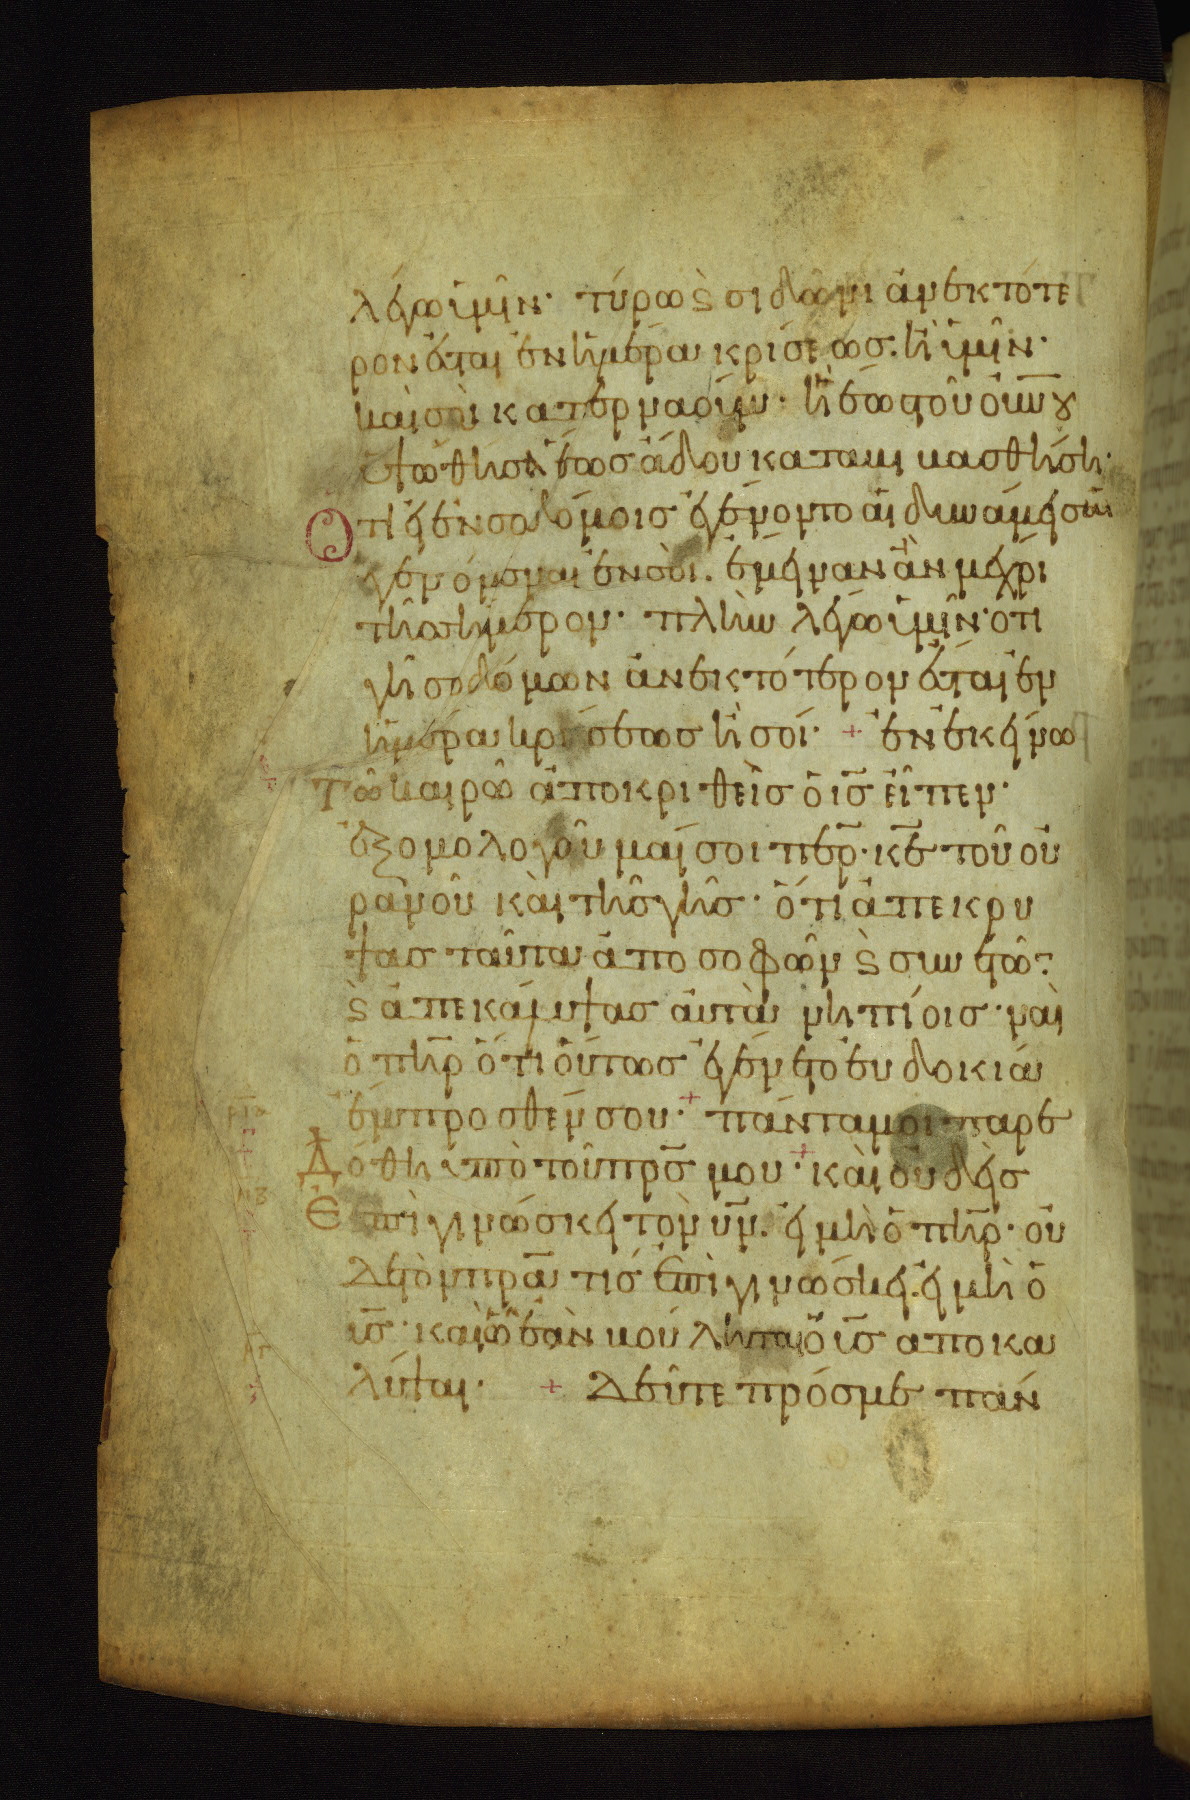 λέγω ὑμῖν· τύρω ϗ σιδῶνι ἀνεκτότε
ρον ἔσται ἐν ἡμέρα κρίσεως. ἢ ὑμῖν·
καὶ σὺ καπερναούμ· ἡ ἕως τοῦ οὐνου
ὑψωθῆσα ἕως ἅδου καταβιβασθήση·
Ὅτι εἰ ἐν σοδόμοις ἐγένοντο αἱ δυνάμεις αἱ
γενόμεναι ἐν σοὶ. ἔμειναν ἂν μέχρι
τῆς σήμερον· πλὴν λέγω ὑμῖν· ὅτι
γῆ σοδόμων ἀνεκτότερον ἔσται ἐν
ἡμέρα κρίσεως ἢ σοί· + ἐν ἐκείνω
Τῶ καιρῶ ἀποκριθεὶς ὁ ις εἶπεν·
ἐξομολογοῦμαί σοι περ· κε τοῦ οὐ
ρανοῦ καὶ τῆς γῆς· ὅτι ἀπεκρυ
ψας ταῦτα ἀπο σοφῶν ϗ συνετῶν·
ϗ ἀπεκάλυψας αὐτὰ νηπίοις· ναὶ
ὁ πηρ ὅτι οὕτως ἐγένετο εὐδοκία
ἔμπροσθέν σου· + πάντα μοι παρε
Δόθη ὑπὸ τοῦ πρς μου· + καὶ οὐδεὶς
Ἐπιγινώσκει τὸν υν. εἰ μὴ ὁ πηρ· οὐ
δὲ τὸν πρα τίς ἐπιγινώσκει. εἰ μὴ ὁ
υς· καὶ ὧ ἐὰν βούληται ὁ υς αποκα
λύψαι· + Δεῦτε πρός με πάν